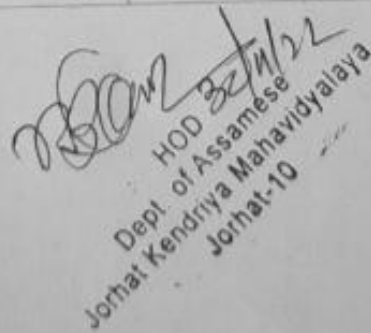 HOD 30/4/22
Dept. of Assamese
Jorhat Kendriya Mahavidyalaya
Jorhat-10